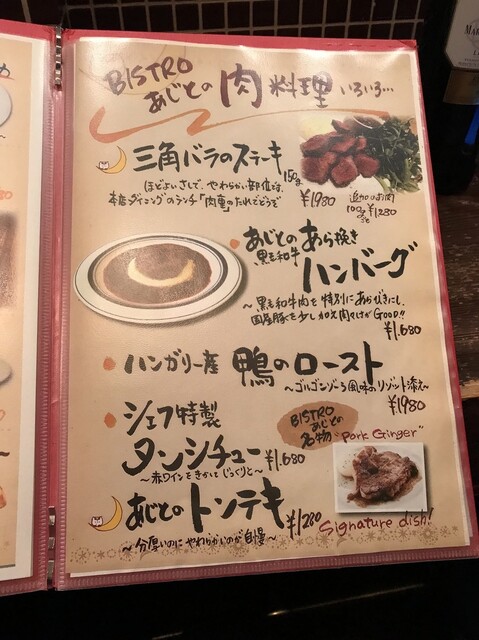 BISTRO
あじとの 肉 料理 いろいろ…
三角バラのステーキ
150g
ほどよいさしで、やわらかい部位は、
本店ダイニングのランチ「肉重」のたれでどうぞ
¥1980
追加のお肉
100gごと ¥1,280
・あじとのあら挽き
黒毛和牛 ハンバーグ
～黒毛和牛肉を特別にあらびきにし、
国産豚を少し加え肉々しさがGood!!
¥1.680
・ハンガリー産 鴨のロースト
～ゴルゴンゾーラ風味のリゾット添え～
¥1980
・シェフ特製
タンシチュー
¥1.680
～赤ワインをきかせてじっくりと～
BISTRO
あじとの
名物
"Pork Ginger"
あじとのトンテキ
¥1280
～分厚いのにやわらかいのが自慢～
Signature dish!